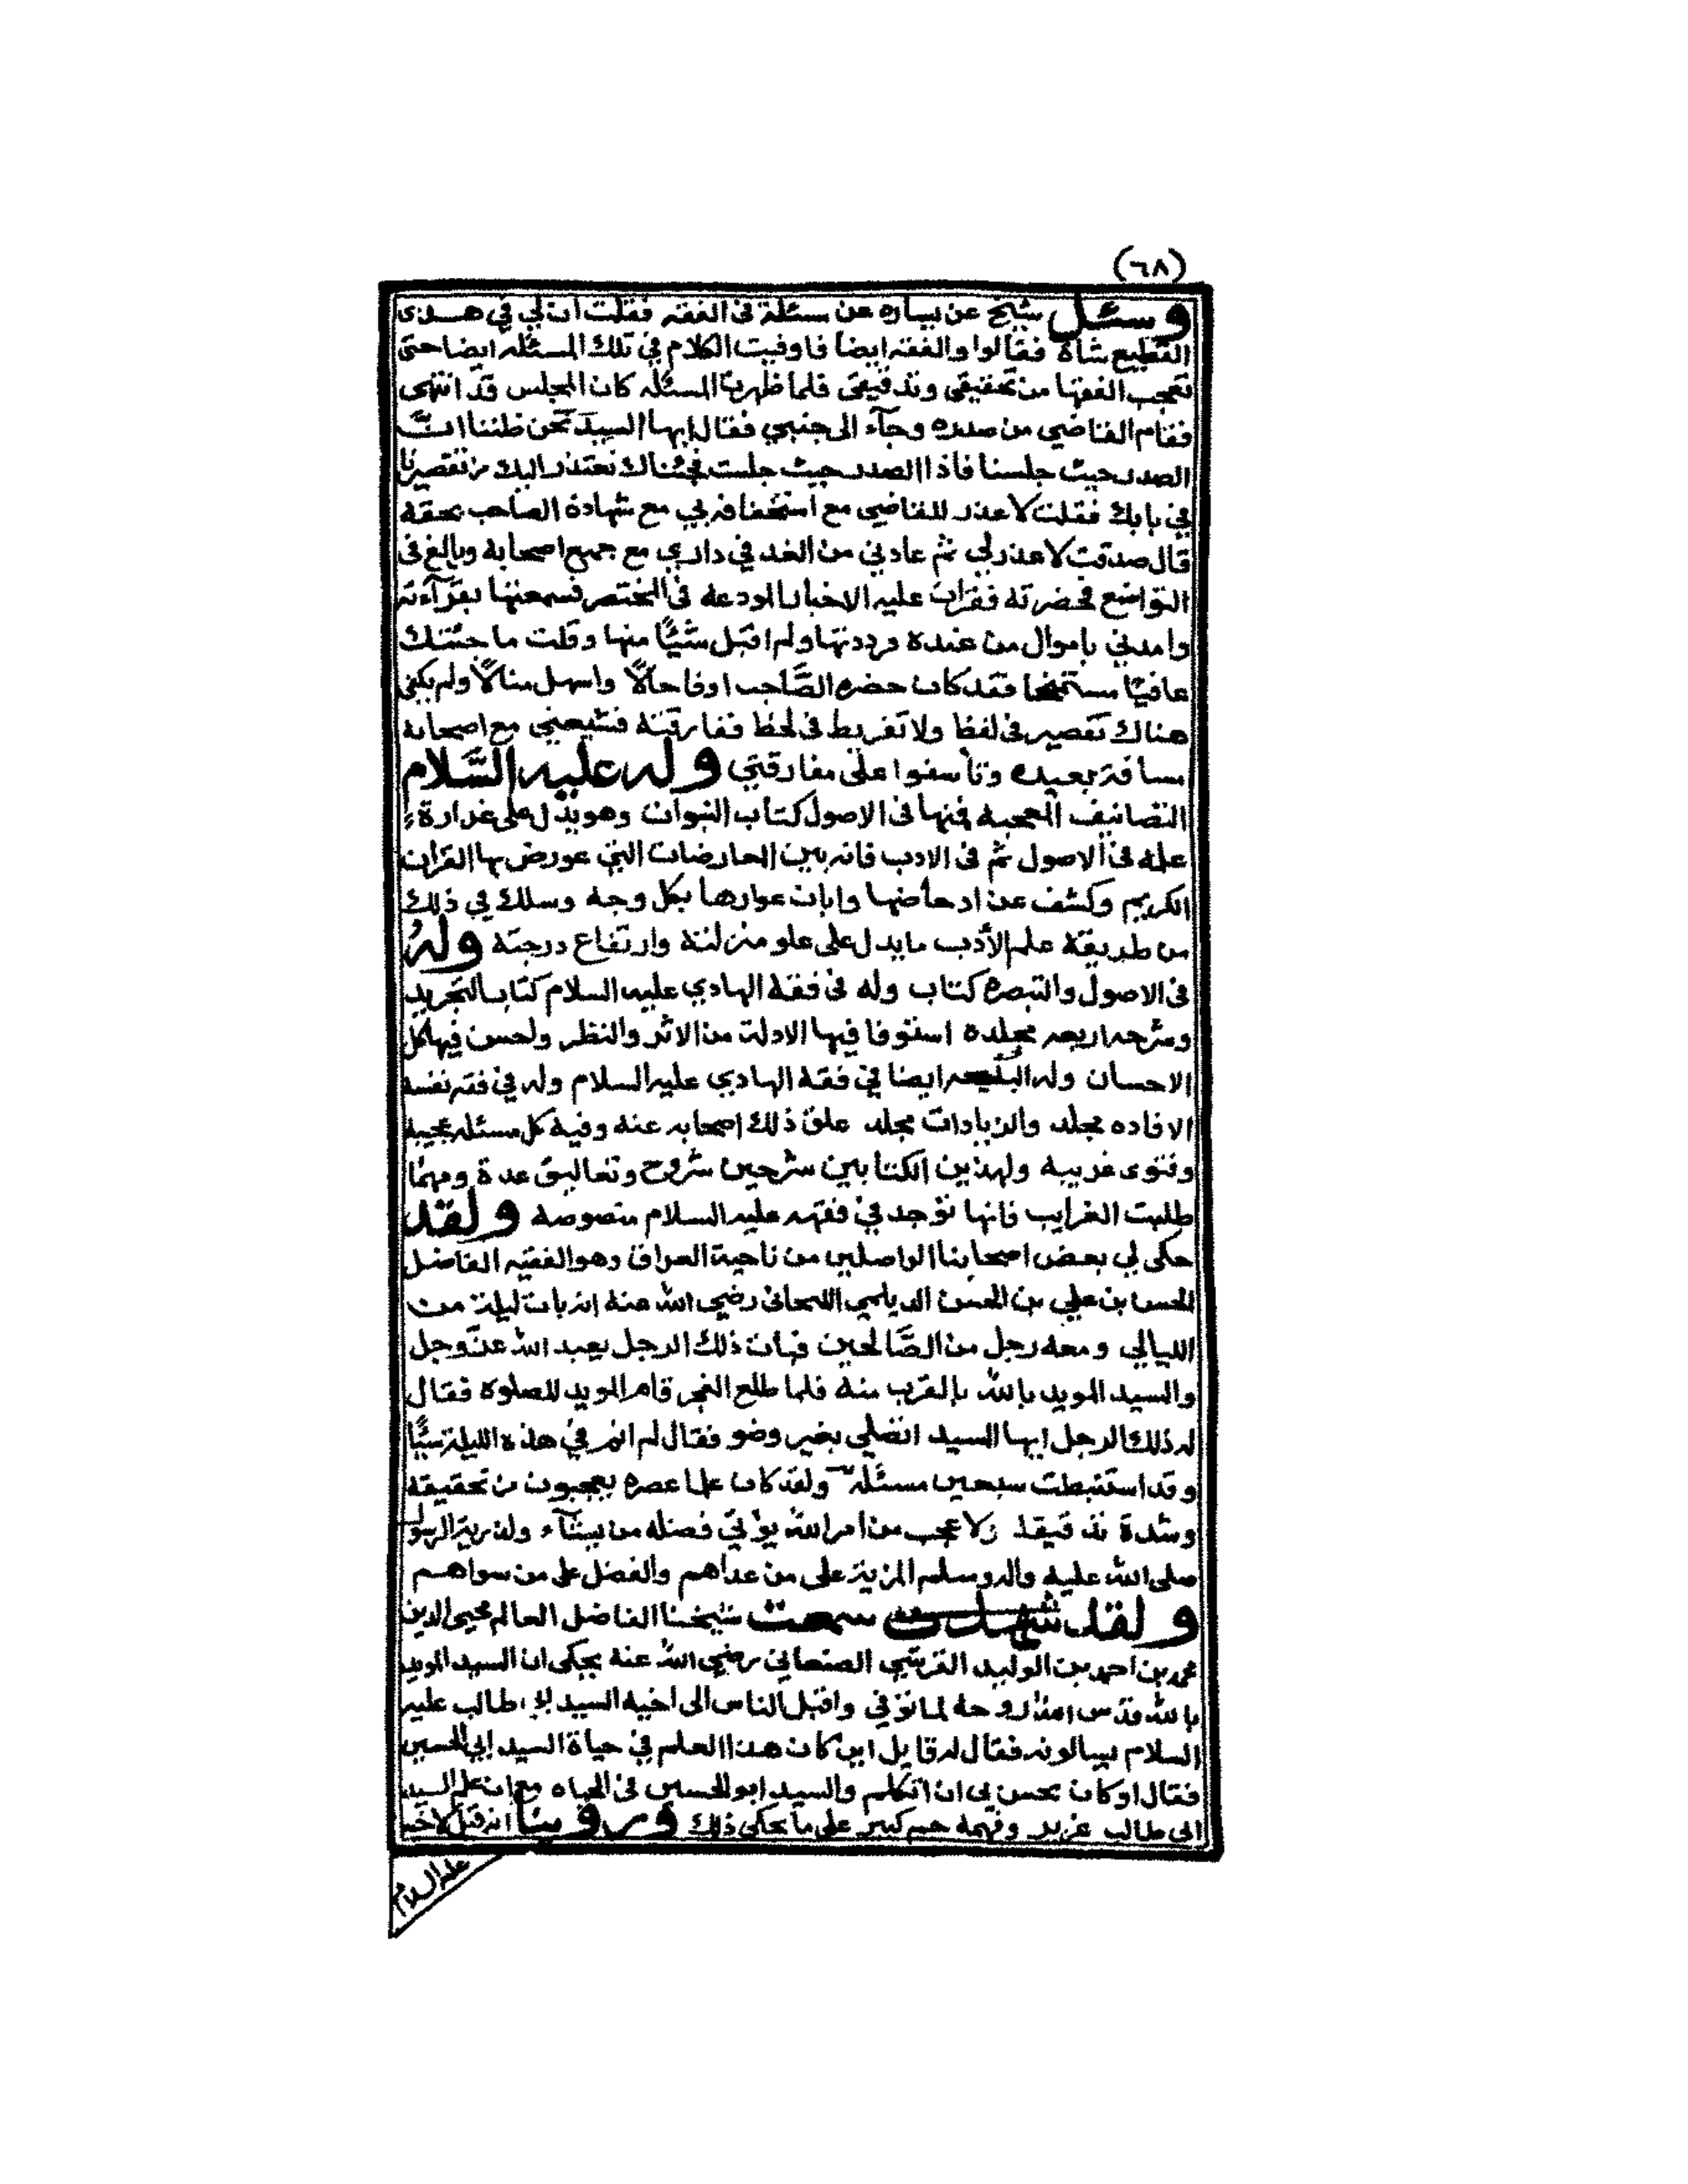 (٦٨)
وسئل شيخ عن يساره عن مسئلة فى الفقه فقلت ان لي في هـذى
القطيع شاة فقالوا والفقه ايضا فاوفيت الكلام في تلك المسئله ايضا حتى
تعجب الفقها من تحقيقي وتدقيقى فلما ظهرت المسئله كان المجلس قد انتهى
فقام القاضي من صدره وجآء الى جنبي فقال ايها السيد نحن ظننا انَّ
الصدر حيث جلسنا فاذا الصدر حيث جلست فجئناك نعتذر اليك من تقصيرنا
في بابك فقلت لا عذر للقاضي مع استخفافه بي مع شهادة الصاحب بحقه
قال صدقت لا عذر لي ثم عادني من الغد في داري مع جميع اصحابه وبالغ فى
التواضع فحضرته فقرات عليه الاخبار المودعه فى المختصر فسمعتها بقرآءته
وامدني باموال من عنده ورددتها ولم اقبل شيئًا منها وقلت ما جئتك
عافيًا مستمنحا فقد كان حضره الصَّاحب اوفا حالًا واسهل منالًا ولم يكن
هناك تقصير فى لفظ ولا تفريط فى لحظ ففارقته فشيعني مع اصحابه
مسافة بعيده وتأسفوا على مفارقتي وله عليه السَّلام
التصانيف المعجبه فمنها فى الاصول كتاب النبوات وهو يدل على غزارة
علمه فى الاصول ثم فى الادب فانه بين المعارضات التي عورض بها القران
الكريم وكشف عن ادحاضها وابان عوارها بكل وجه وسلك في ذلك
من طريقة علم الأدب ما يدل على علو منزلته وارتفاع درجته وله
فى الاصول والتبصره كتاب وله فى فقه الهادي عليه السلام كتاب التجريد
وشرحه اربعه مجلدة استوفا فيها الادلة من الاثر والنظر واحسن فيها كل
الاحسان وله البلغه ايضا في فقه الهادي عليه السلام وله في فقه نفسه
الافاده مجلد والزيادات مجلد علق ذلك اصحابه عنه وفيه كل مسئله عجيبه
وفتوى غريبه ولهذين الكتابين شرحين شروح وتعاليق عدة ومهما
طلبت الغرايب فانها توجد في فقهه عليه السلام منصوصه ولقد
حكى لي بعض اصحابنا الواصلين من ناحية العراق وهو الفقيه الفاضل
الحسن بن علي بن الحسن الديلمي اللنجانى رضي الله عنه انه بات ليلة من
الليالي ومعه رجل من الصَّالحين فبات ذلك الرجل يعبد الله عزَّ وجل
والسيد المويد بالله بالقرب منه فلما طلع الفجر قام المويد للصلوة فقال
له ذلك الرجل ايها السيد اتصلي بغير وضو فقال لم انم في هذه الليلة شيئًا
وقد استنبطت سبعين مسئله ولقد كان علما عصره يعجبون من تحقيقه
وشدة تدقيقه ولا عجب من امر الله يؤتي فضله من يشآء ولذرية الرسول
صلى الله عليه واله وسلم المزية على من عداهم والفضل على من سواهـم
ولقد سمعت شيخنا الفاضل العالم محيي الدين
محمد بن احمد بن الوليد القرشي الصنعاني رضي الله عنه يحكى ان السيد المويد
بالله قدس الله روحه لما توفي واقبل الناس الى اخيه السيد ابي طالب عليه
السلام يسالونه فقال له قايل اين كان هذا العلم في حياة السيد ابي الحسين
فقال اوكان يحسن بي ان اتكلم والسيد ابو الحسين فى الحياه مع ان علم السيد
ابى طالب غزير وفهمه جم كبير على ما يحكى ذلك وروينا انه قيل لاخيه
عليه السلام